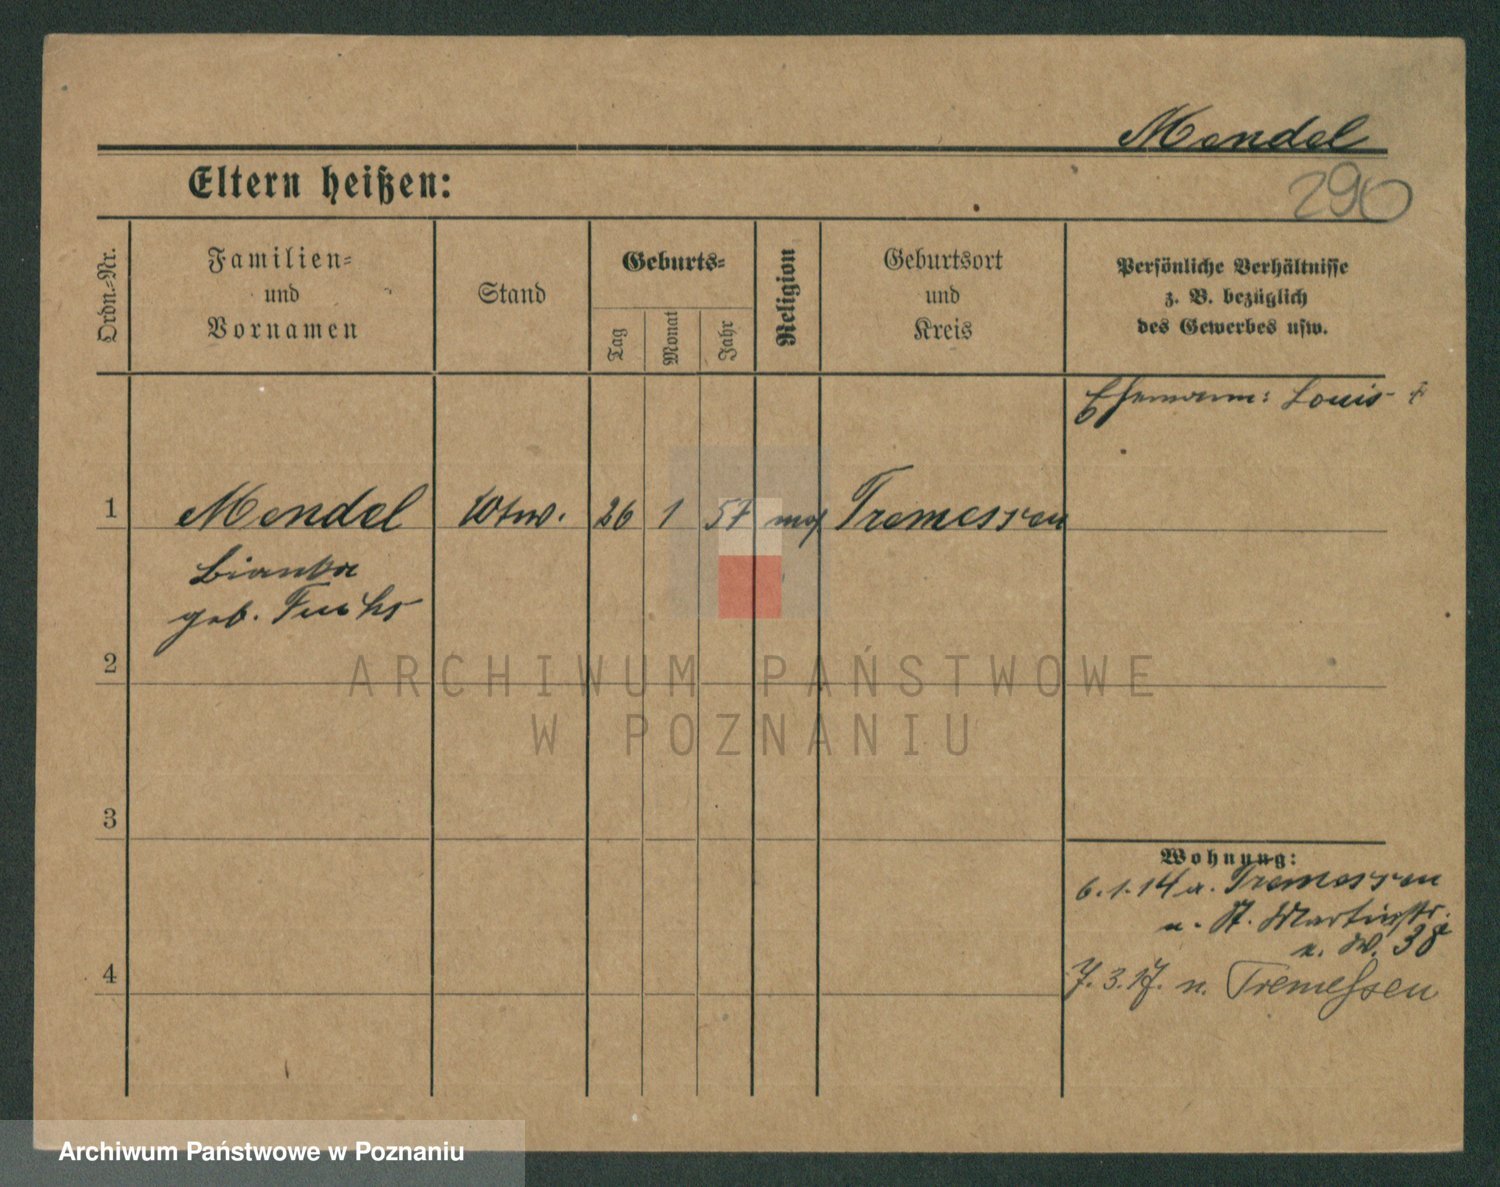 Mendel
Eltern heißen:
290
Ordn.-Nr.
Familien-
und
Vornamen
Stand
Geburts-
Tag
Monat
Jahr
Religion
Geburtsort
und
Kreis
Persönliche Verhältnisse
z. B. bezüglich
des Gewerbes usw.
Ehemann: Louis †
1
Mendel
Wtw.
26
1
57
mos
Tremessen
Bianka
geb. Fuchs
2
ARCHIWUM PAŃSTWOWE
W POZNANIU
3
Wohnung:
6.1.14 a. Tremessen
n. St. Martinstr.
38
4
7.3.17. n. Tremeſsen
Archiwum Państwowe w Poznaniu